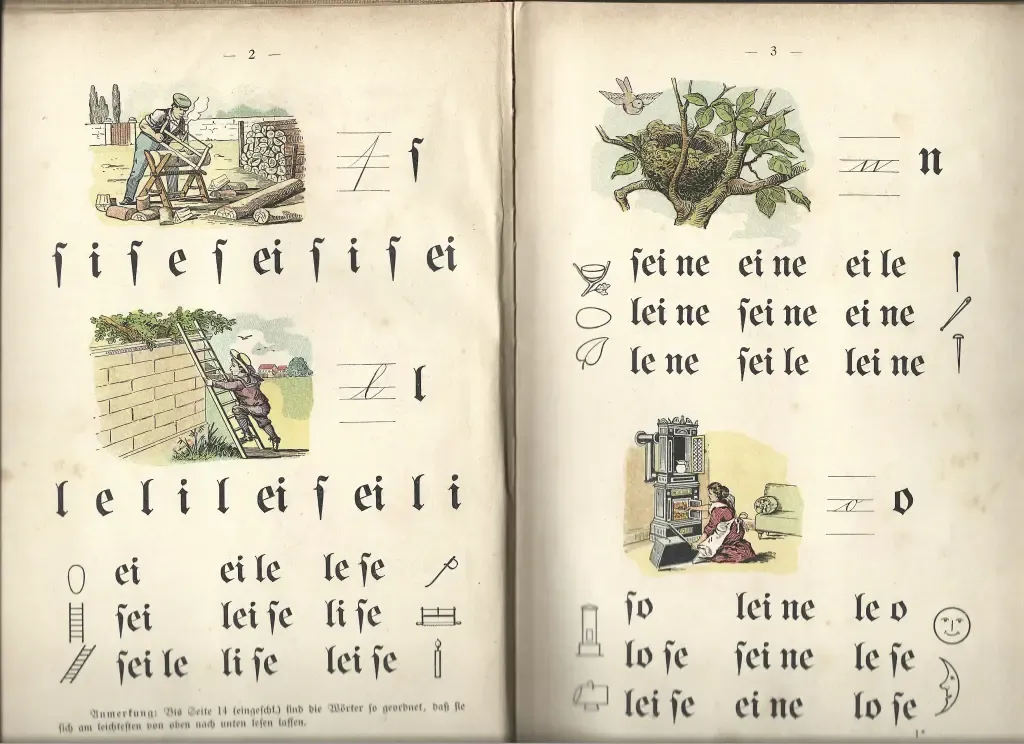 — 2 —
ſ ſ
ſ i ſ e ſ ei ſ i ſ ei
l l
l e l i l ei ſ ei l i
ei ei le le ſe
ſei lei ſe li ſe
ſei le li ſe lei ſe
Anmerkung: Bis Seite 14 (eingeſchl.) ſind die Wörter ſo geordnet, daß ſie
ſich am leichteſten von oben nach unten leſen laſſen.
— 3 —
n n
ſei ne ei ne ei le
lei ne ſei ne ei ne
le ne ſei le lei ne
o o
ſo lei ne le o
lo ſe ſei ne le ſe
lei ſe ei ne lo ſe
1*